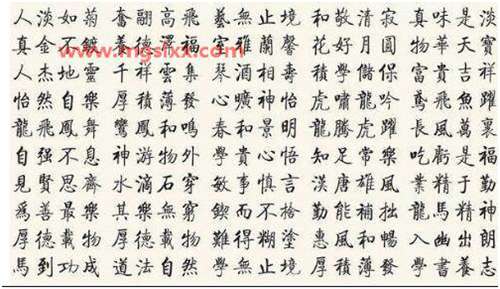 人淡如菊 奮翮高飛 藝無止境 和敬清寂 真味是淡
真金不鍍 養德澤福 室雅蘭馨 花好月圓 物華天寶
www.mgslxx.com
人杰地靈 千祥雲集 琴酒相壽 學儲保 富貴吉祥
怡然自樂 厚積薄發 心曠神怡 虎嘯龍吟 鳶飛魚躍
龍飛鳳舞 鸞鳳和鳴 春和景明 龍騰虎躍 長風萬裏
自强不息 神游物外 學貴心悟 知足常樂 吃虧是福
見賢思齊 水滴石穿 敏事慎言 漢唐雄風 業精于勤
爲善最樂 其樂無窮 鍥而不捨 勤能補拙 龍馬精神
厚德載物 厚德載物 難得糊塗 惠風和暢 入幽出朗
馬到功成 道法自然 學無止境 厚積薄發 學書養志